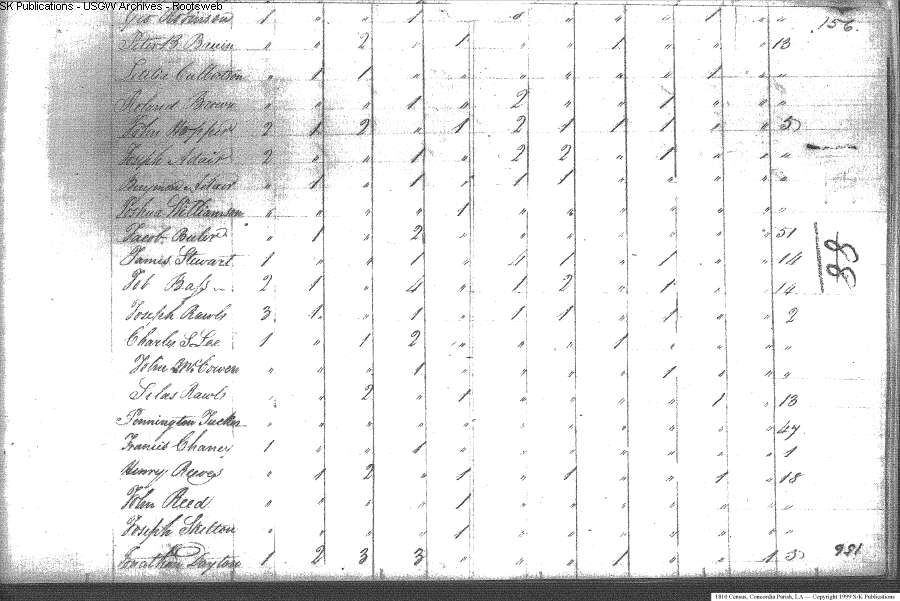 SK Publications - USGW Archives - Rootsweb
Geo Robinson 1 " " 1 " 3 " " 1 " "
156
Peter B. Bruin " " 2 " 1 " " 1 " " " 13
Culbertson " 1 1 " " " " " " 1 " "
Brown " " " 1 " 2 " " 1 " " "
John Hopper 2 1 2 " 1 2 1 1 1 " " 5
Joseph Adair 2 " " 1 " 2 2 " 1 " " "
Adair " 1 " 1 " 1 1 " " " " "
Joshua Williamson " " " " 1 " " " " " " "
Jacob " 1 " 2 " " " " " " " 51
James Stewart 1 " " 1 " 4 1 " 1 " " 14
88
Job Bass 2 1 " 4 " 1 2 " 1 " " 14
Joseph Rawls 3 1 " 1 " 1 1 " 1 " " 2
Charles S. Lee 1 " 1 2 " " " 1 " " " "
John McCowen " " " 1 " " " " 1 " " "
Silas Rawls " " 2 " 1 " " " " 1 " 13
Pennington Tucker " " " " " " " " " " " 47
Francis Chaney 1 " " 1 " " " " " " " 1
Henry Reeves " 1 2 " 1 " 1 " " 1 " 18
John Reed " " " " 1 " " " " " " "
Joseph Skelton " " " " 1 " " " " " " "
Jonathan Dayton 1 2 3 3 " " " 1 " " 1 5
981
1810 Census, Concordia Parish, LA — Copyright 1999 S-K Publications